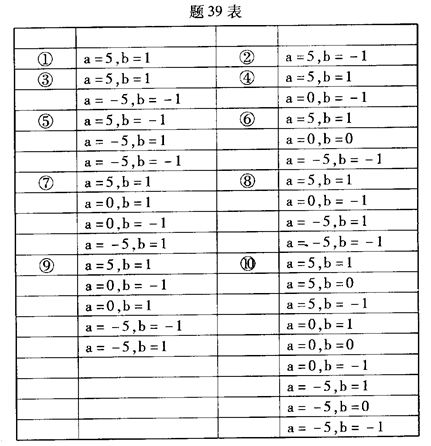 题 39 表
① a=5,b=1 ② a=5,b=-1
③ a=5,b=1 ④ a=5,b=1
a=-5,b=-1 a=0,b=-1
⑤ a=5,b=-1 ⑥ a=5,b=1
a=-5,b=1 a=0,b=0
a=-5,b=-1 a=-5,b=-1
⑦ a=5,b=1 ⑧ a=5,b=1
a=0,b=1 a=0,b=-1
a=0,b=-1 a=-5,b=1
a=-5,b=1 a=-5,b=-1
⑨ a=5,b=1 ⑩ a=5,b=1
a=0,b=-1 a=5,b=0
a=0,b=1 a=5,b=-1
a=-5,b=-1 a=0,b=1
a=-5,b=1 a=0,b=0
a=0,b=-1
a=-5,b=1
a=-5,b=0
a=-5,b=-1